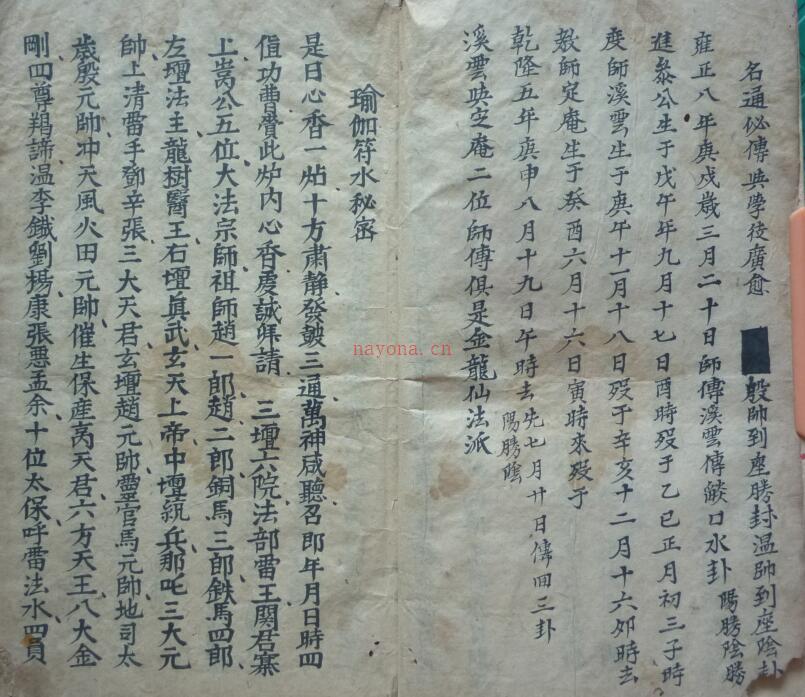 名通必傳與學徒廣愈 殷帥到座勝封温帥到座陰卦
雍正八年庚戌歲三月二十日師傅溪雲傳燄口水卦陽勝陰勝
進泰公生于戊午年九月十七日酉時歿于乙巳正月初三子時
度師溪雲生于庚午十一月十八日歿于辛亥十二月十六卯時去
教師定庵生于癸酉六月十六日寅時來歿于
乾隆五年庚申八月十九日午時去先七月廿日傳回三卦
陽勝陰
溪雲與定庵二位師傅俱是金龍仙法派
瑜伽符水秘密
是日心香一炷十方肅靜發皷三通萬神咸聽召即年月日時四
值功曹賫此炉内心香虔誠拜請 三壇六院法部雷王闕君寨
上嵩公五位大法宗師祖師趙一郎趙二郎銅馬三郎鉄馬四郎
左壇法主龍樹醫王右壇真武玄天上帝中壇統兵那吒三大元
帥上清雷手鄧辛張三大天君玄壇趙元帥靈官馬元帥地司太
歲殷元帥冲天風火田元帥催生保産高天君六方天王八大金
剛四尊羯諦温李鐵劉楊康張惡孟余十位太保呼雷法水四員
nayona.cn